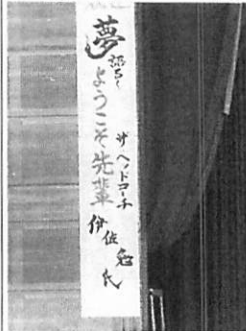 夢
ようこそ先輩
ザ ヘッドコーチ
伊佐 氏